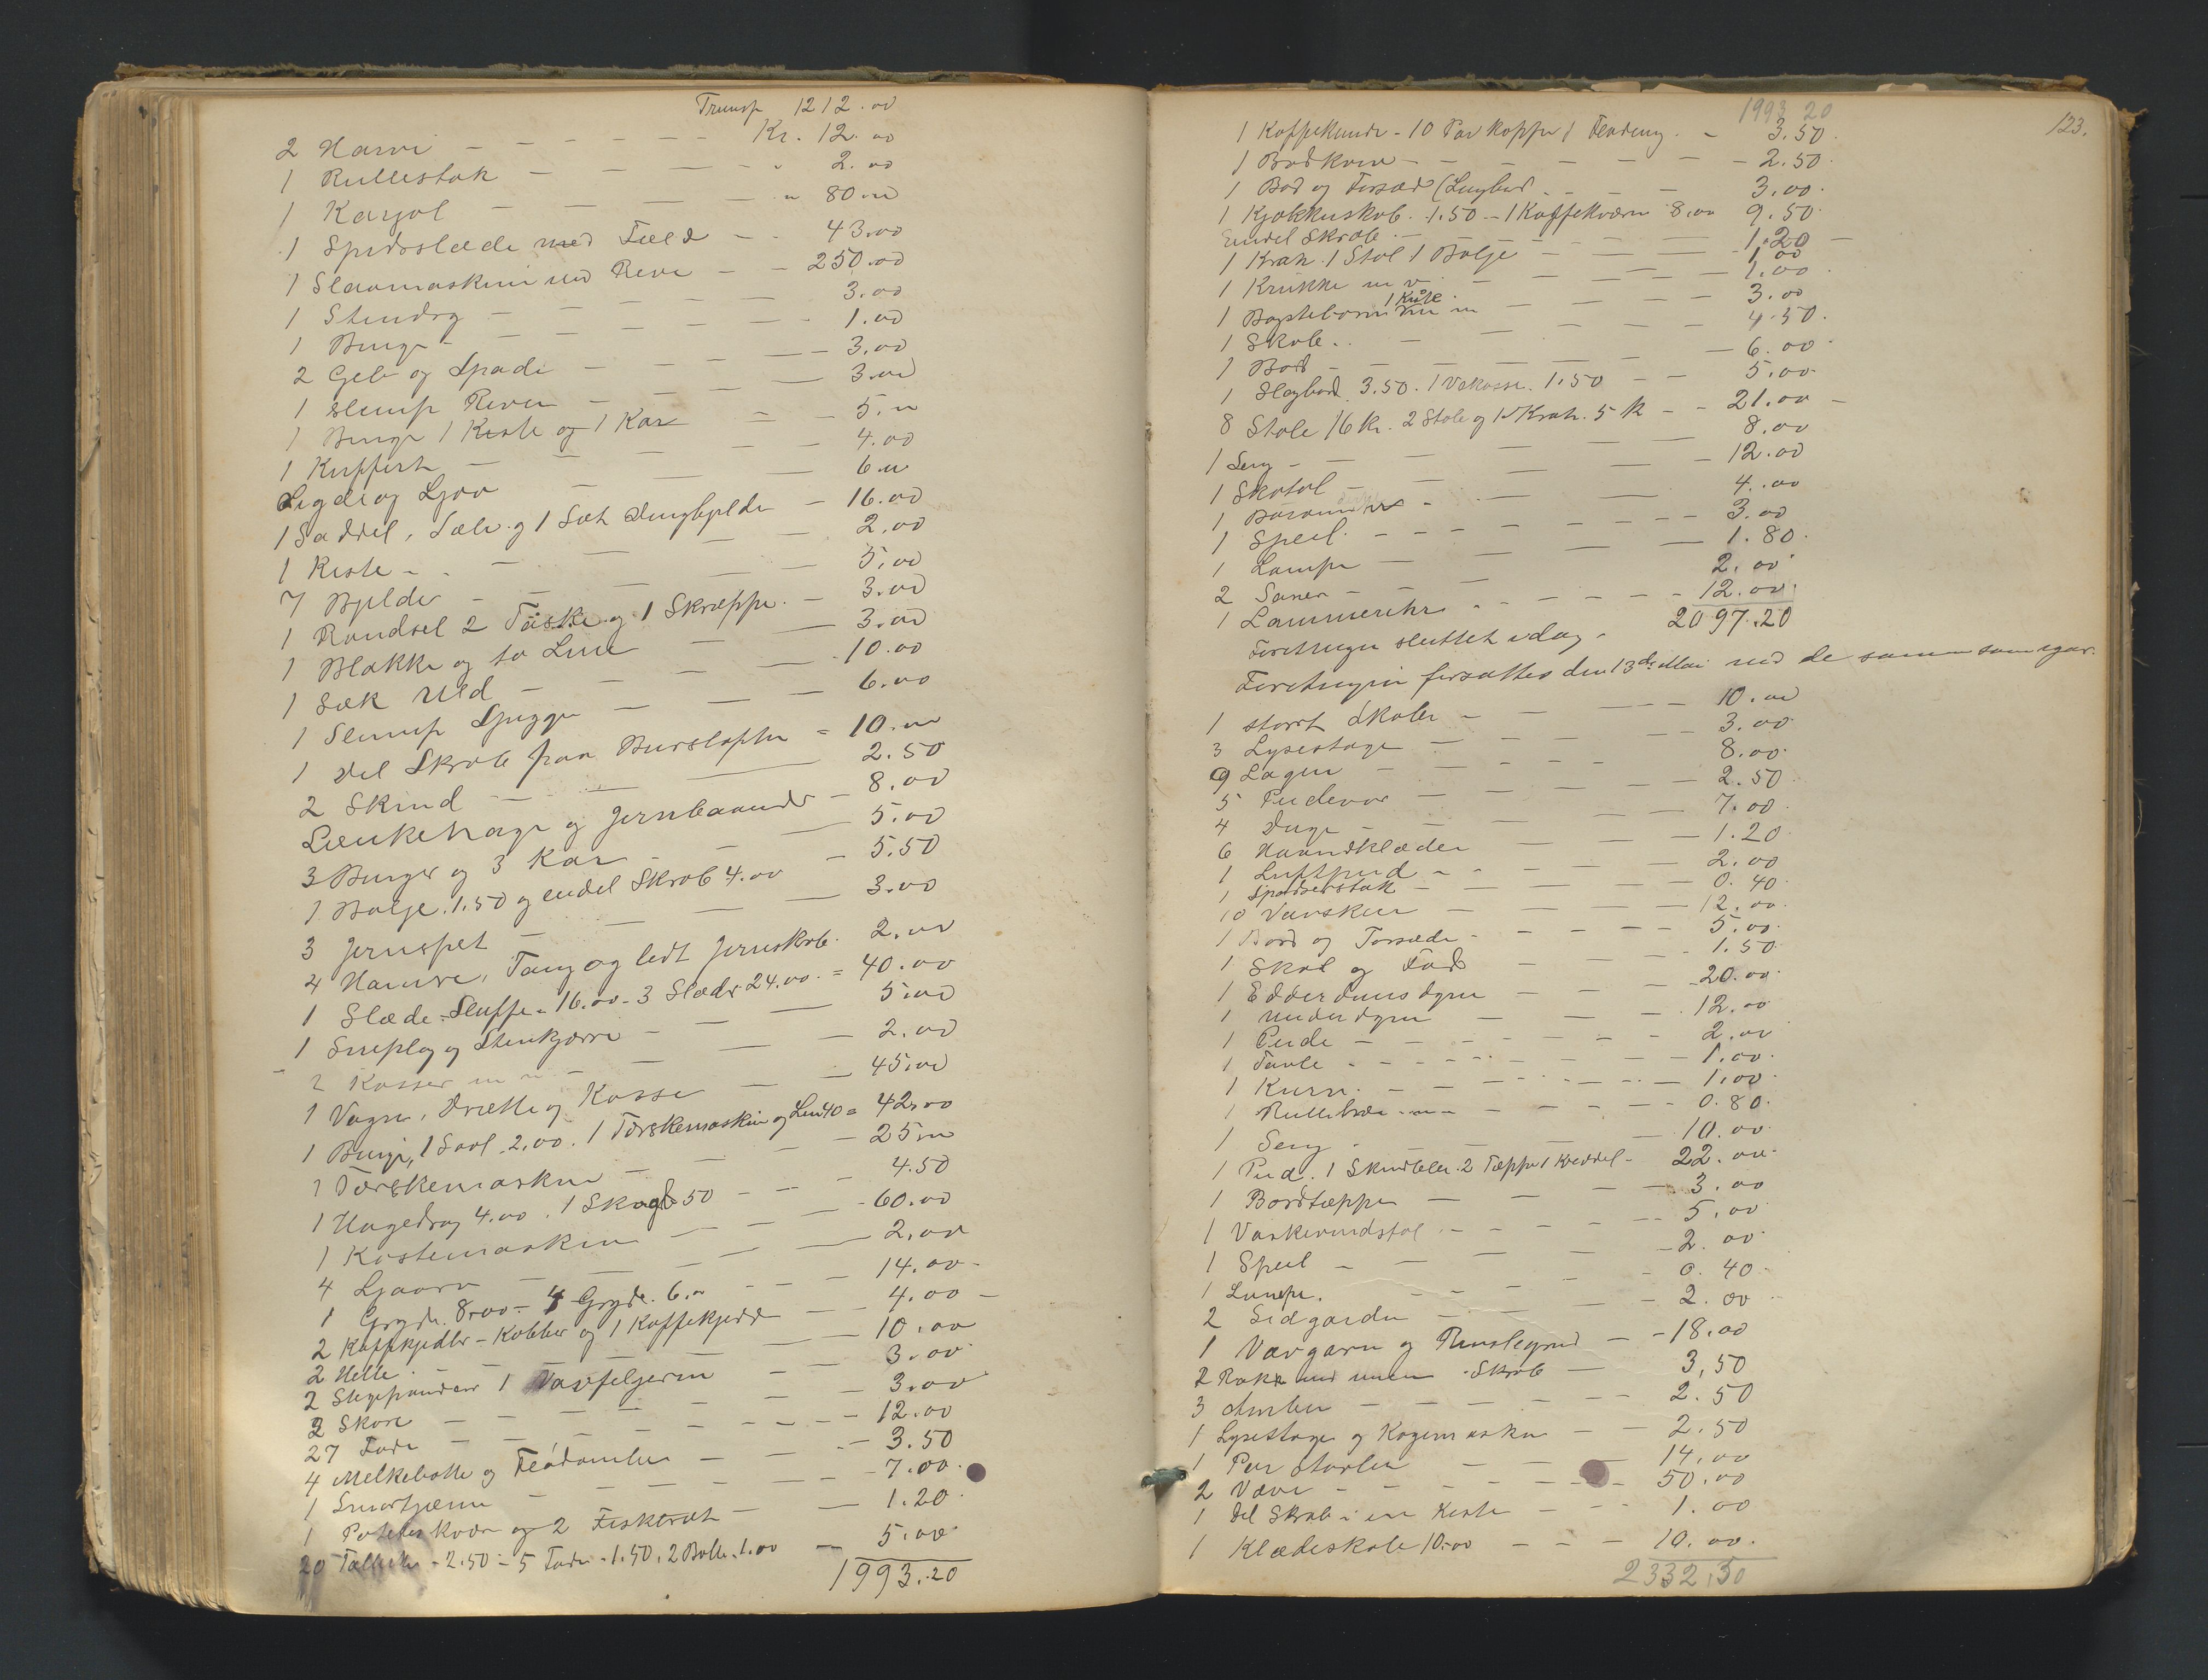 Transp 1212.00
2 Harve - - - - - Kr. 12.00
1 Rullestok - - - - " 2.00
1 Karjol - - - - " 80.00
1 Spidsslæde med Fæld - - 43.00
1 Slaamaskine med Rive - - 250.00
1 Stendrg - - - - 3.00
1 Binge - - - - 1.00
2 Greb og Spade - - - - 3.00
1 slump River - - - 3.00
1 Binge 1 Kiste og 1 Kar - - 5.00
1 Kuffert - - - - 4.00
Sigde og Ljaa - - - 6.00
1 Saddel, Sæle og 1 Sæt - 16.00
1 Kiste - - - - 2.00
7 Bjelder - - - - 5.00
1 Randsel 2 Taske og 1 Skræppe - 3.00
1 Blakke og to Line - - 3.00
1 Sæk Uld - - - 10.00
1 Slump - - - 6.00
1 Del Skrab paa - 10.00
2 Skind - - - 2.50
Lænkehage og Jernbaand - 8.00
3 Binger og 3 Kar - - 5.00
1 Balje. 1.50 og endel Skrab 4.00 - 5.50
3 Jernspet - - - 3.00
4 Hamre, Tang og lidt Jernskrab. 2.00
1 Slæde - Sluffe - 16.00 - 3 Slæder 24.00 = 40.00
1 Sneplog og Stenkjærre - - 5.00
2 Kasser m m - - - 2.00
1 Vogn, Drætte og Kasse - - 45.00
1 Binge, 1 Saal 2.00. 1 Tærskemaskine og Lem 40 = 42.00
1 Tærskemaskine - - - 25.00
1 Hagedrag 4.00. 1 Skagle 50 - - - 4.50
1 Kastemaskine - - - 60.00
4 Ljaarv - - - 2.00
1 Gryde. 8.00 - 4 Gryde. 6.00 - - 14.00 -
2 Kaffekjedler - Kobber og 1 Kaffekjedel - - 4.00 -
2 Helle - - - 10.00
2 Stegepander 1 Vaffeljern - - 3.00
2 Skaar - - - 3.00
27 Fade - - - 12.00
4 Melkebøtte og Fløteambar - - 3.50
1 Smørtjerne - - - 7.00
1 Potetes kværn og 2 Fiskerist - - 1.20
20 Tallerker - 2.50 - 5 Fade - 1.50. 2 Boller. 1.00 - 5.00
1993.20
123.
1993 20
1 Kaffekande - 10 Par Kopper 1 - 3.50
1 - - - - 2.50
1 Bord og Forsæd (Langbord - - - 3.00
1 Kjøkkenskab. 1.50 - 1 Kaffekværn 8.00 9.50
Endel Skrab. - - - 1.20 -
1 Krak. 1 Stol 1 Balje - - - 1.00
1 Krukke m v. - - - 1.00
1 1 Kiste m m - - - 3.00
1 Skab.. - - - 4.50
1 Bord - - - 6.00
1 Slagbord 3.50. 1 Vedkasse. 1.50 - - 5.00
8 Stole 16 kr. 2 Stole og 1 Krak. 5 K - - 21.00 -
1 Seng - - - 8.00
1 Skatol - - - 12.00
1 Barometer - - - 4.00
1 Speil - - - 3.00
1 Lampe - - - 1.80
2 - - - 2.00
1 Lammeuhr - - - 12.00
Forretningen sluttet idag - 2097.20
Forretningen forsattes den 13de Mai med de samme som igaar.
1 stort Skab - - - 10.00
3 Lysestage - - - 3.00
9 Lagen - - - 8.00
5 Pudevar - - - 2.50
4 Duge - - - 7.00
6 Haandklæder - - - 1.20
1 Luftpud - - - 2.00
1 Spadserstok - - - 0.40
10 - - - 12.00
1 Bord og Forsæde - - - 5.00
1 Skab og Fad - - - 1.50
1 Edderduns dyne - - - 20.00
1 Under dyne - - - 12.00
1 Pude - - - 2.00
1 Tavle - - - 1.00
1 Kurv - - - 1.00
1 - - - 0.80
1 Seng - - - 10.00
1 Pud. 1 Skindfeler. 2 Tæpper 1 Kveddel - 22.00
1 Bordtæppe - - - 3.00
1 - - - 5.00
1 Speil - - - 2.00
1 Lampe. - - - 0.40
2 Sidgardin - - - 2.00
1 Vævgarn og - - 18.00
2 Rokk med Skrab - - 3.50
3 Ambar - - - 2.50
1 Lysestage og Kogemaskin - - 2.50
1 Par Støvler - - - 14.00
2 Væve - - - 50.00
1 Del Skrab i en Kiste - - 1.00
1 Klædeskab 10.00 - - - 10.00
2332,50